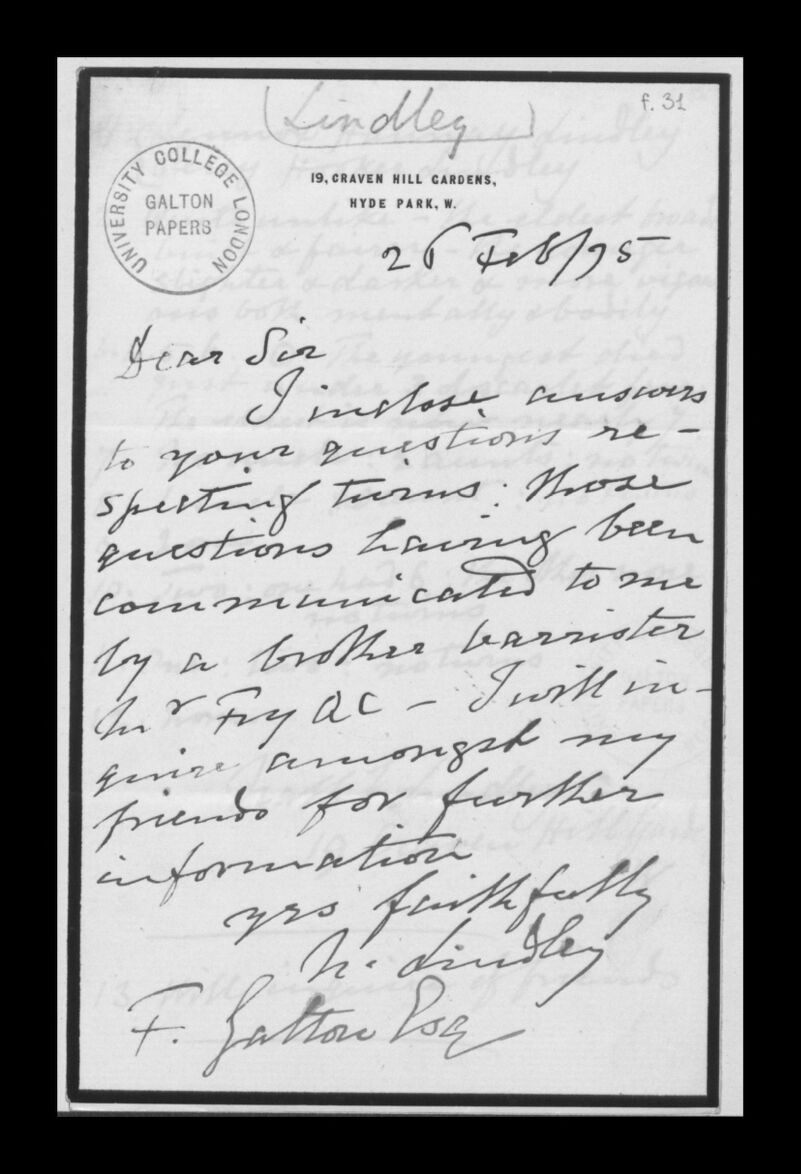 (Lindley)
f. 31
UNIVERSITY COLLEGE LONDON
GALTON
PAPERS
19, CRAVEN HILL GARDENS,
HYDE PARK, W.
26 Feb/75
Dear Sir
I inclose answers
to your questions re-
specting twins: those
questions having been
communicated to me
by a brother barrister
Mr Fry QC - I will in-
quire amongst my
friends for further
information
yrs faithfully
N. Lindley
F. Galton Esq